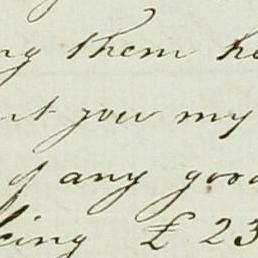 ng them he
nt you my
of any good
king £ 23